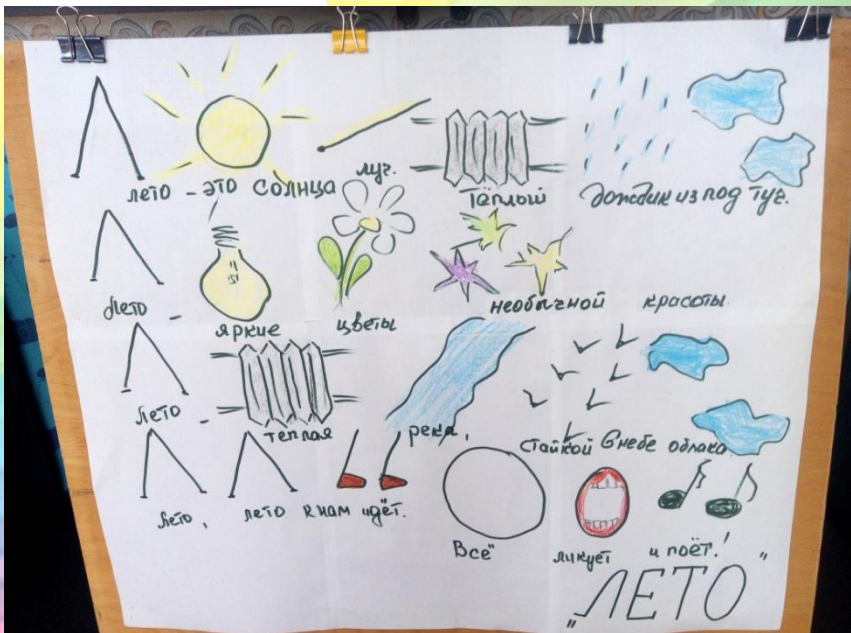 лето – это солнца луч.
тёплый дождик из под туч.
Лето – яркие цветы
необычной красоты.
Лето – теплая река,
стайкой в небе облака.
Лето, лето к нам идёт.
Всё ликует и поёт!
„ЛЕТО”